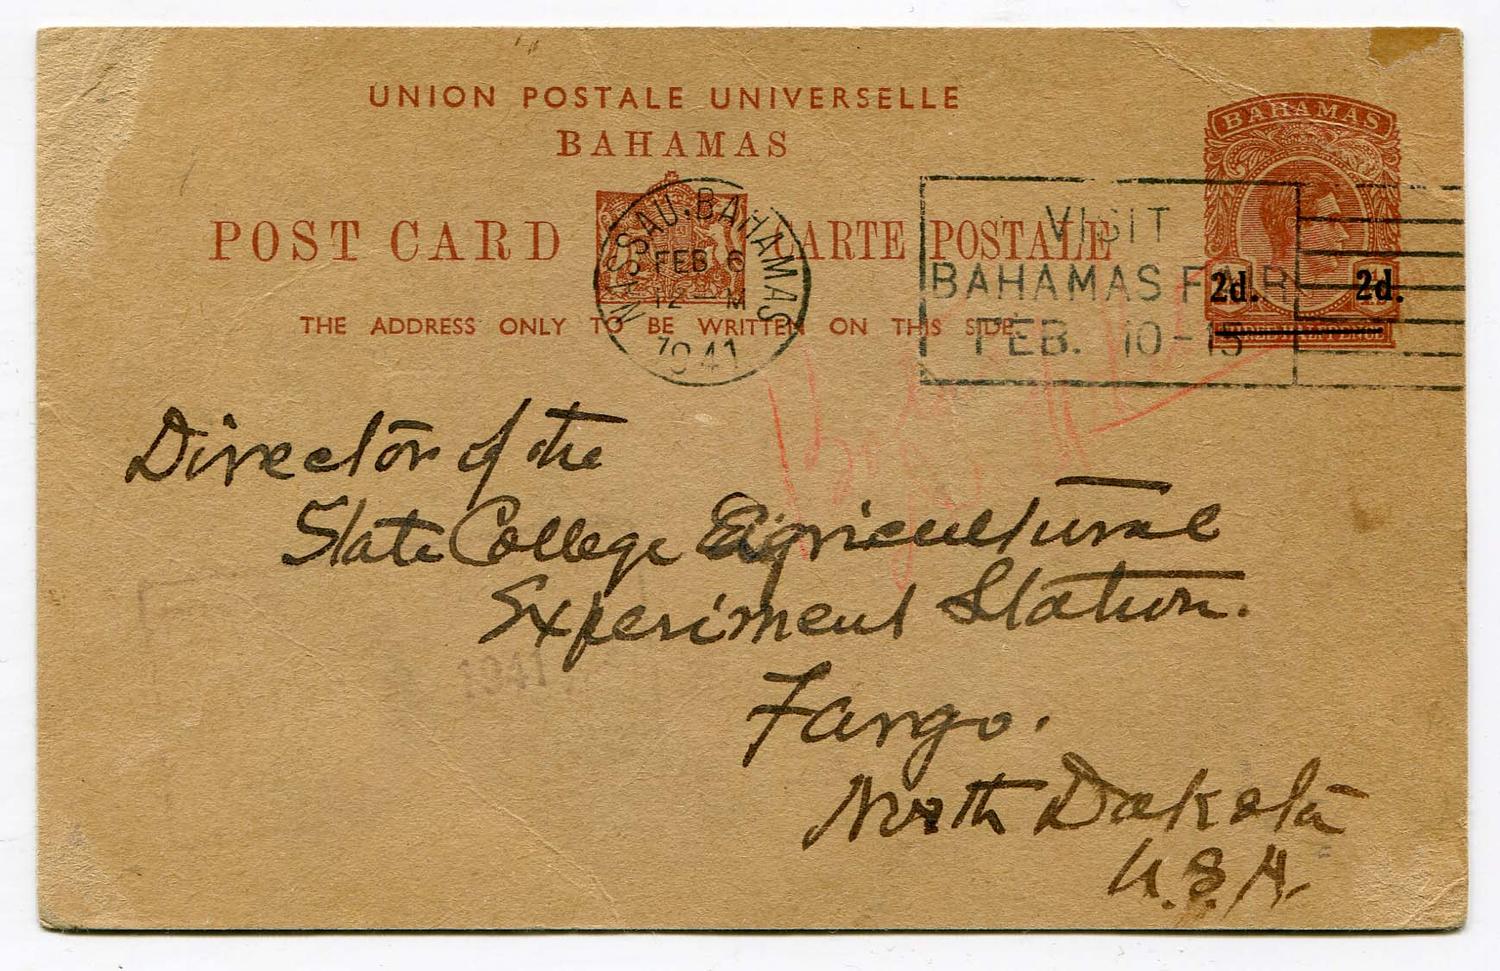 UNION POSTALE UNIVERSELLE
BAHAMAS
POST CARD CARTE POSTALE
THE ADDRESS ONLY TO BE WRITTEN ON THIS SIDE.
BAHAMAS
2d. 2d.
NASSAU. BAHAMAS
FEB 6
12 — M
1941
VISIT
BAHAMAS FAIR
FEB. 10-15
Director of the
State College Agricultural
Experiment Station.
Fargo.
North Dakota
U.S.A.
1941